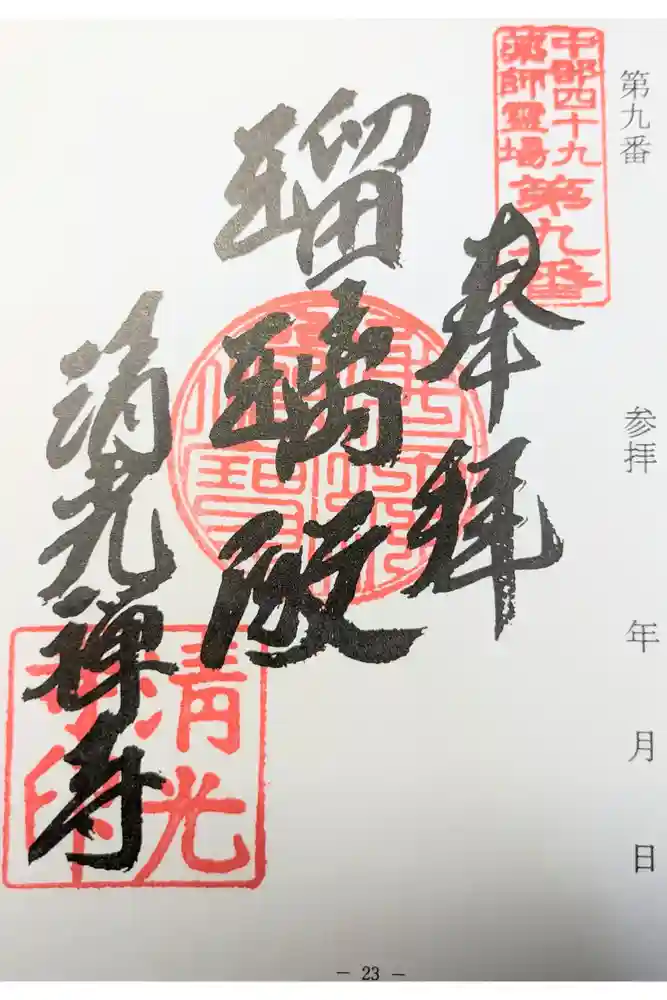 第九番
参拝　年　月　日
中部四十九
薬師霊場
第九番
奉拝
瑠璃殿
清光禅寺
清光
寺印
- 23 -